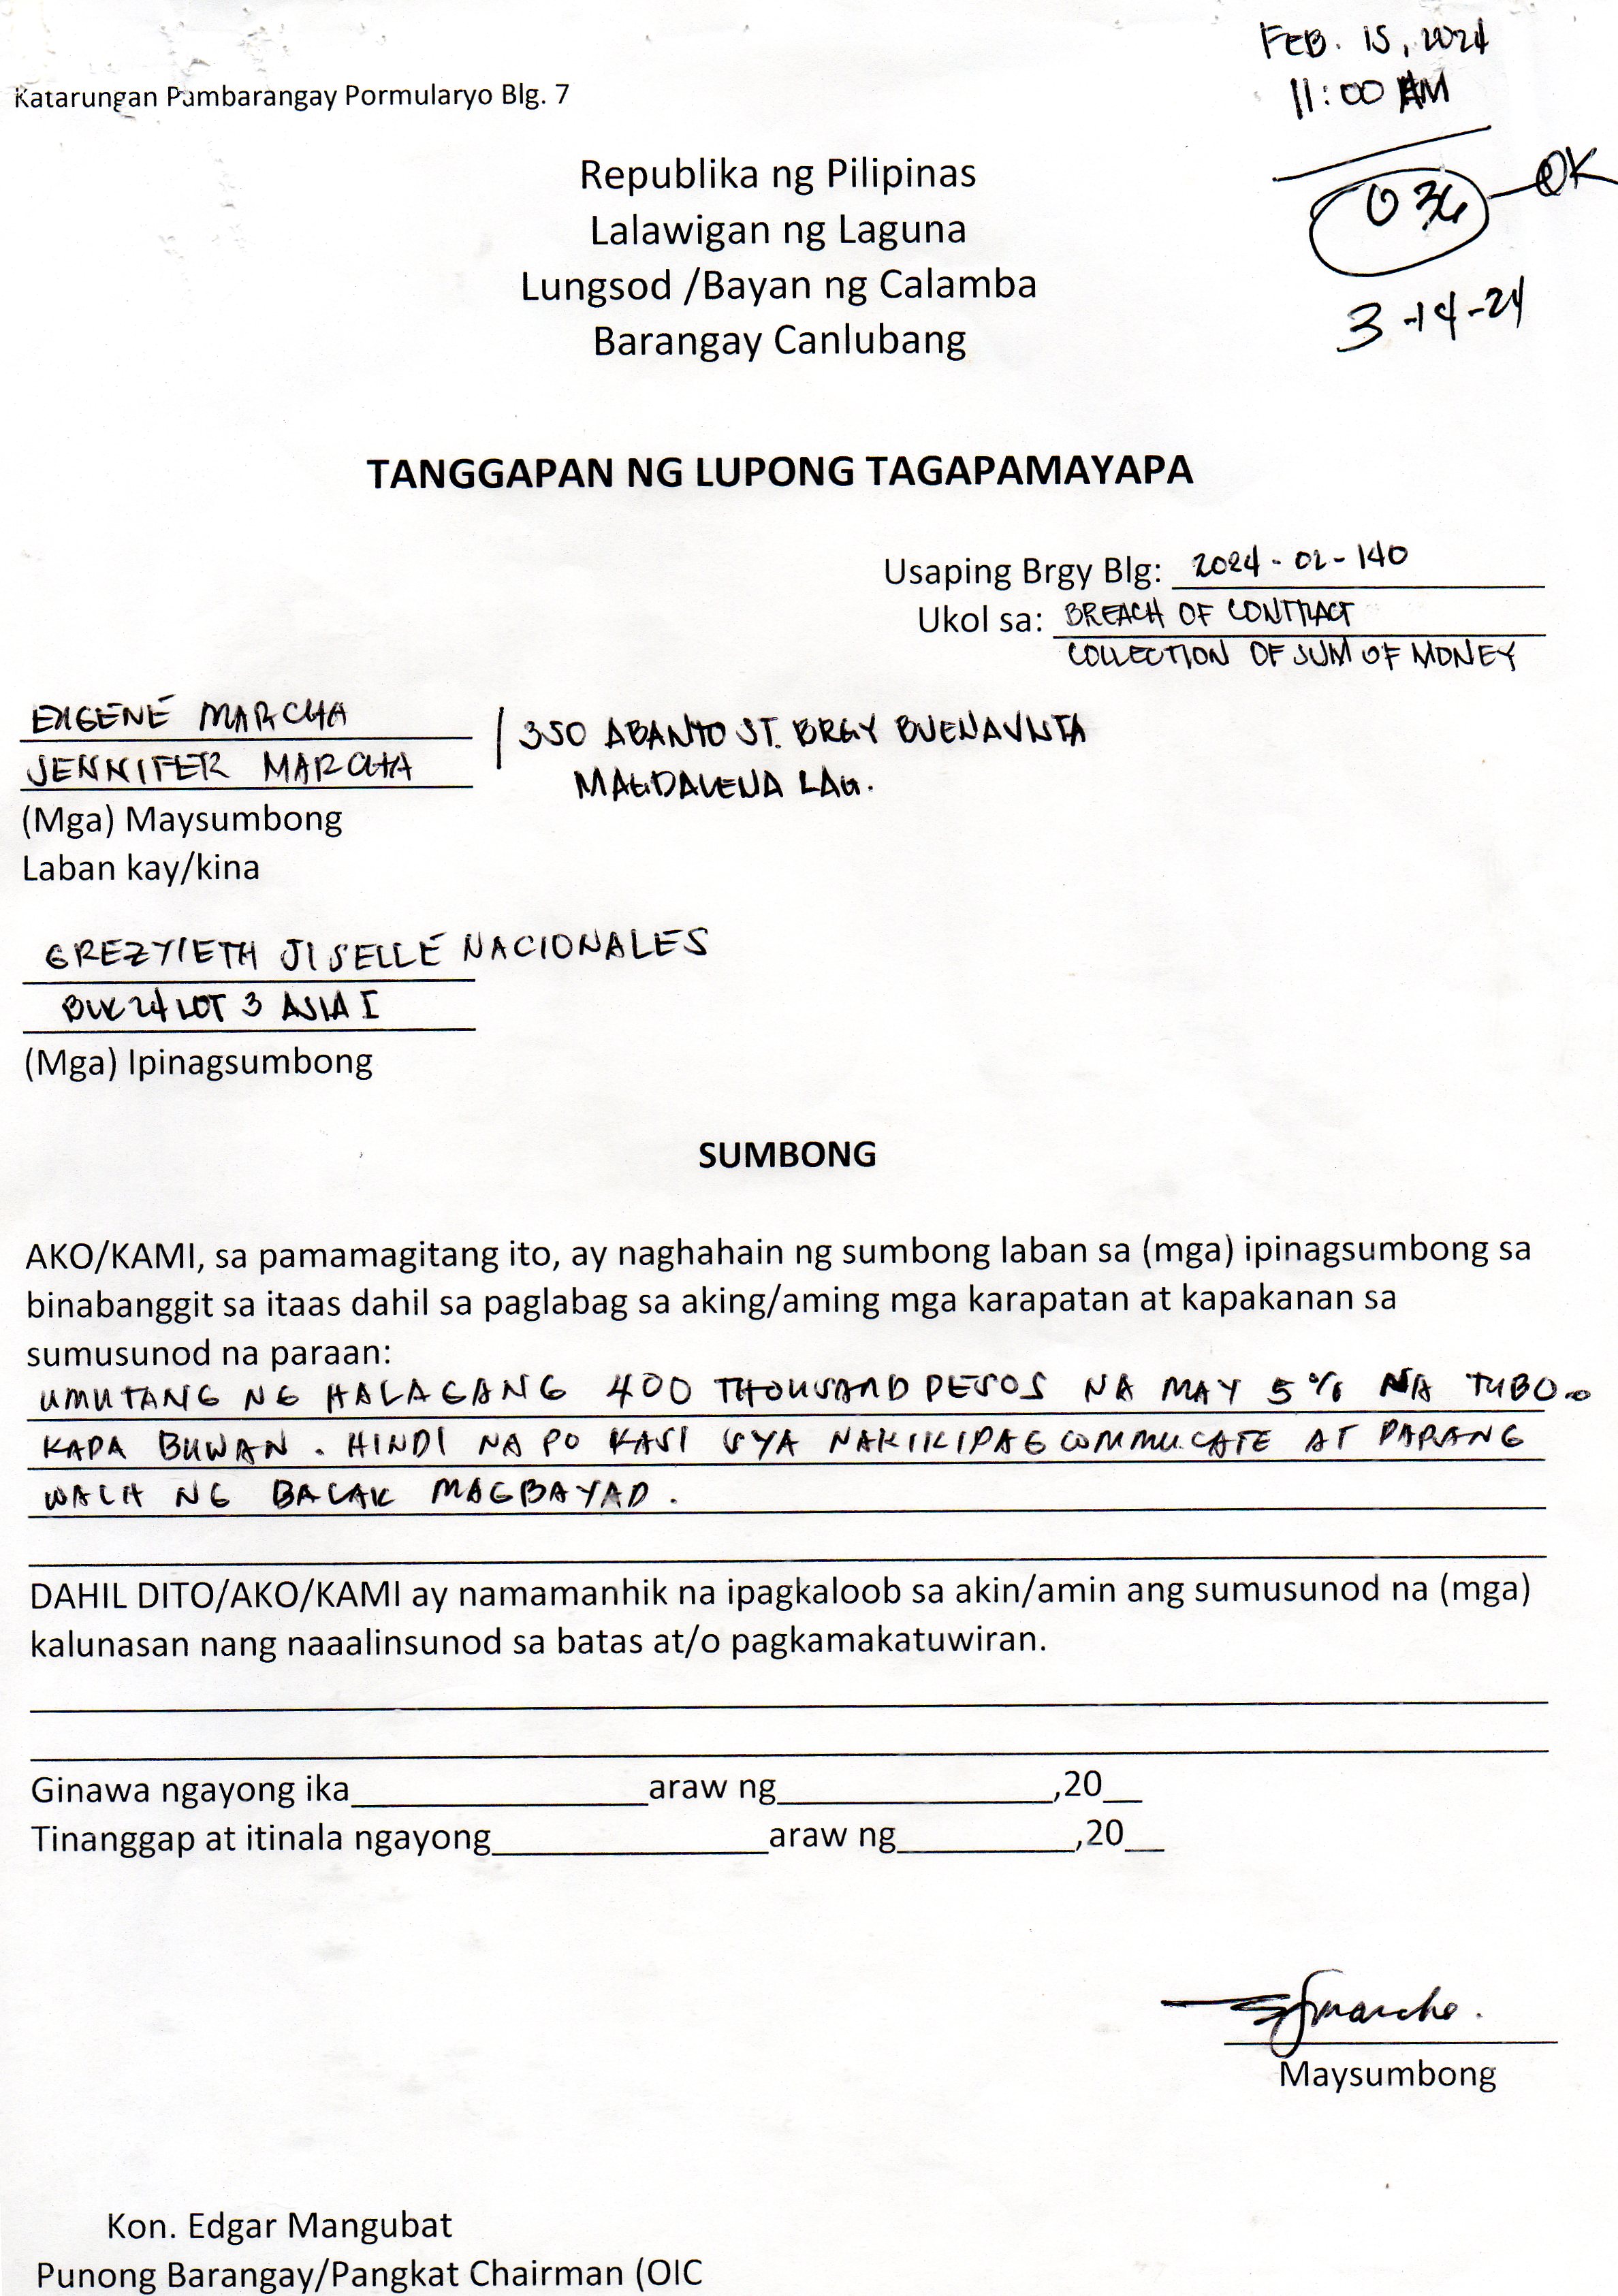 FEB. 15, 2024
11:00 AM
Katarungan Pambarangay Pormularyo Blg. 7
036 OK
3-14-24
Republika ng Pilipinas
Lalawigan ng Laguna
Lungsod /Bayan ng Calamba
Barangay Canlubang
TANGGAPAN NG LUPONG TAGAPAMAYAPA
Usaping Brgy Blg: 2024-02-140
Ukol sa: BREACH OF CONTRACT
COLLECTION OF SUM OF MONEY
EUGENE MARCHA | 350 ABANTO ST. BRGY BUENAVNTA
JENNIFER MARCHA MAGDALENA LAG.
(Mga) Maysumbong
Laban kay/kina
GREZYIETH JISELLE NACIONALES
BLK 24 LOT 3 ASIA I
(Mga) Ipinagsumbong
SUMBONG
AKO/KAMI, sa pamamagitang ito, ay naghahain ng sumbong laban sa (mga) ipinagsumbong sa
binabanggit sa itaas dahil sa paglabag sa aking/aming mga karapatan at kapakanan sa
sumusunod na paraan:
UMUTANG NG HALAGANG 400 THOUSAND PESOS NA MAY 5% NA TUBO
KADA BUWAN. HINDI NA PO KASI SYA NAKIKIPAGCOMMUCATE AT PARANG
WALA NG BALAK MAGBAYAD.
DAHIL DITO/AKO/KAMI ay namamanhik na ipagkaloob sa akin/amin ang sumusunod na (mga)
kalunasan nang naaalinsunod sa batas at/o pagkamakatuwiran.
Ginawa ngayong ika______________araw ng_____________,20__
Tinanggap at itinala ngayong_____________araw ng________,20__
Maysumbong
Kon. Edgar Mangubat
Punong Barangay/Pangkat Chairman (OIC